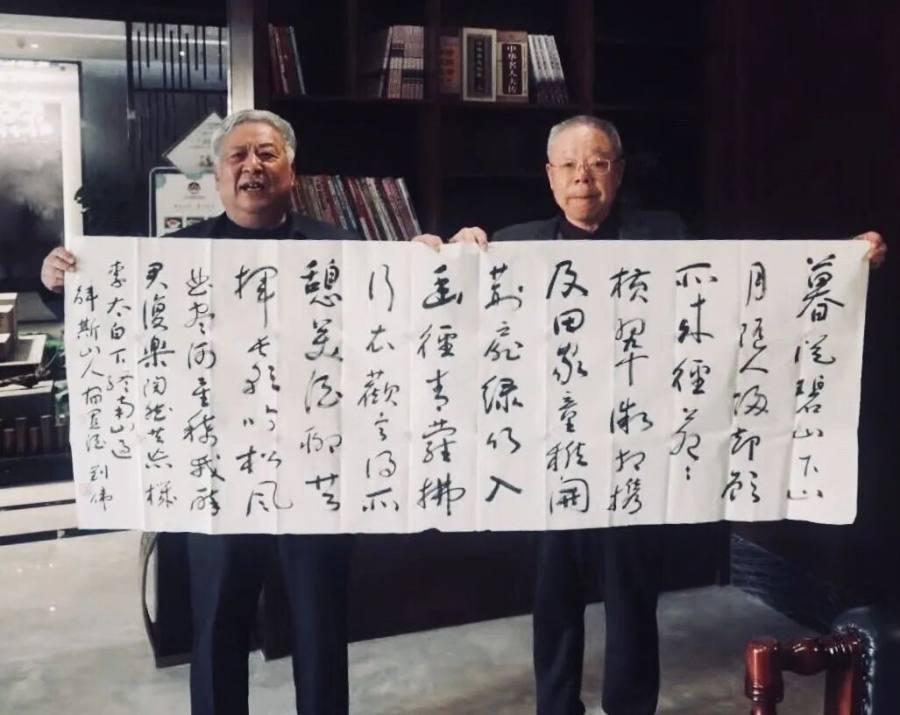 暮從碧山下山
月隨人歸卻顧
所來徑蒼〻
橫翠微相攜
及田家童稚開
荊扉綠竹入
幽徑青蘿拂
行衣歡言得所
憩美酒聊共
揮長歌吟松風
曲盡河星稀我醉
君復樂陶然共忘機
李太白下終南山過
斛斯山人宿置酒 劉偉
中华名人大传